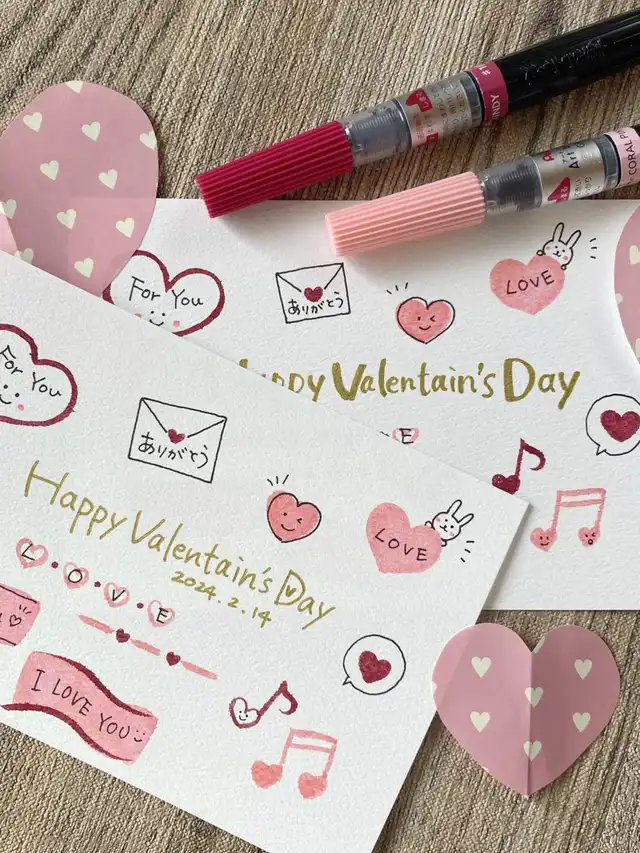 For You
ありがとう
LOVE
Valentain's Day
E
CORAL
For You
ありがとう
LOVE
Happy Valentain's Day
2024.2.14
L・O・V・E
I LOVE YOU